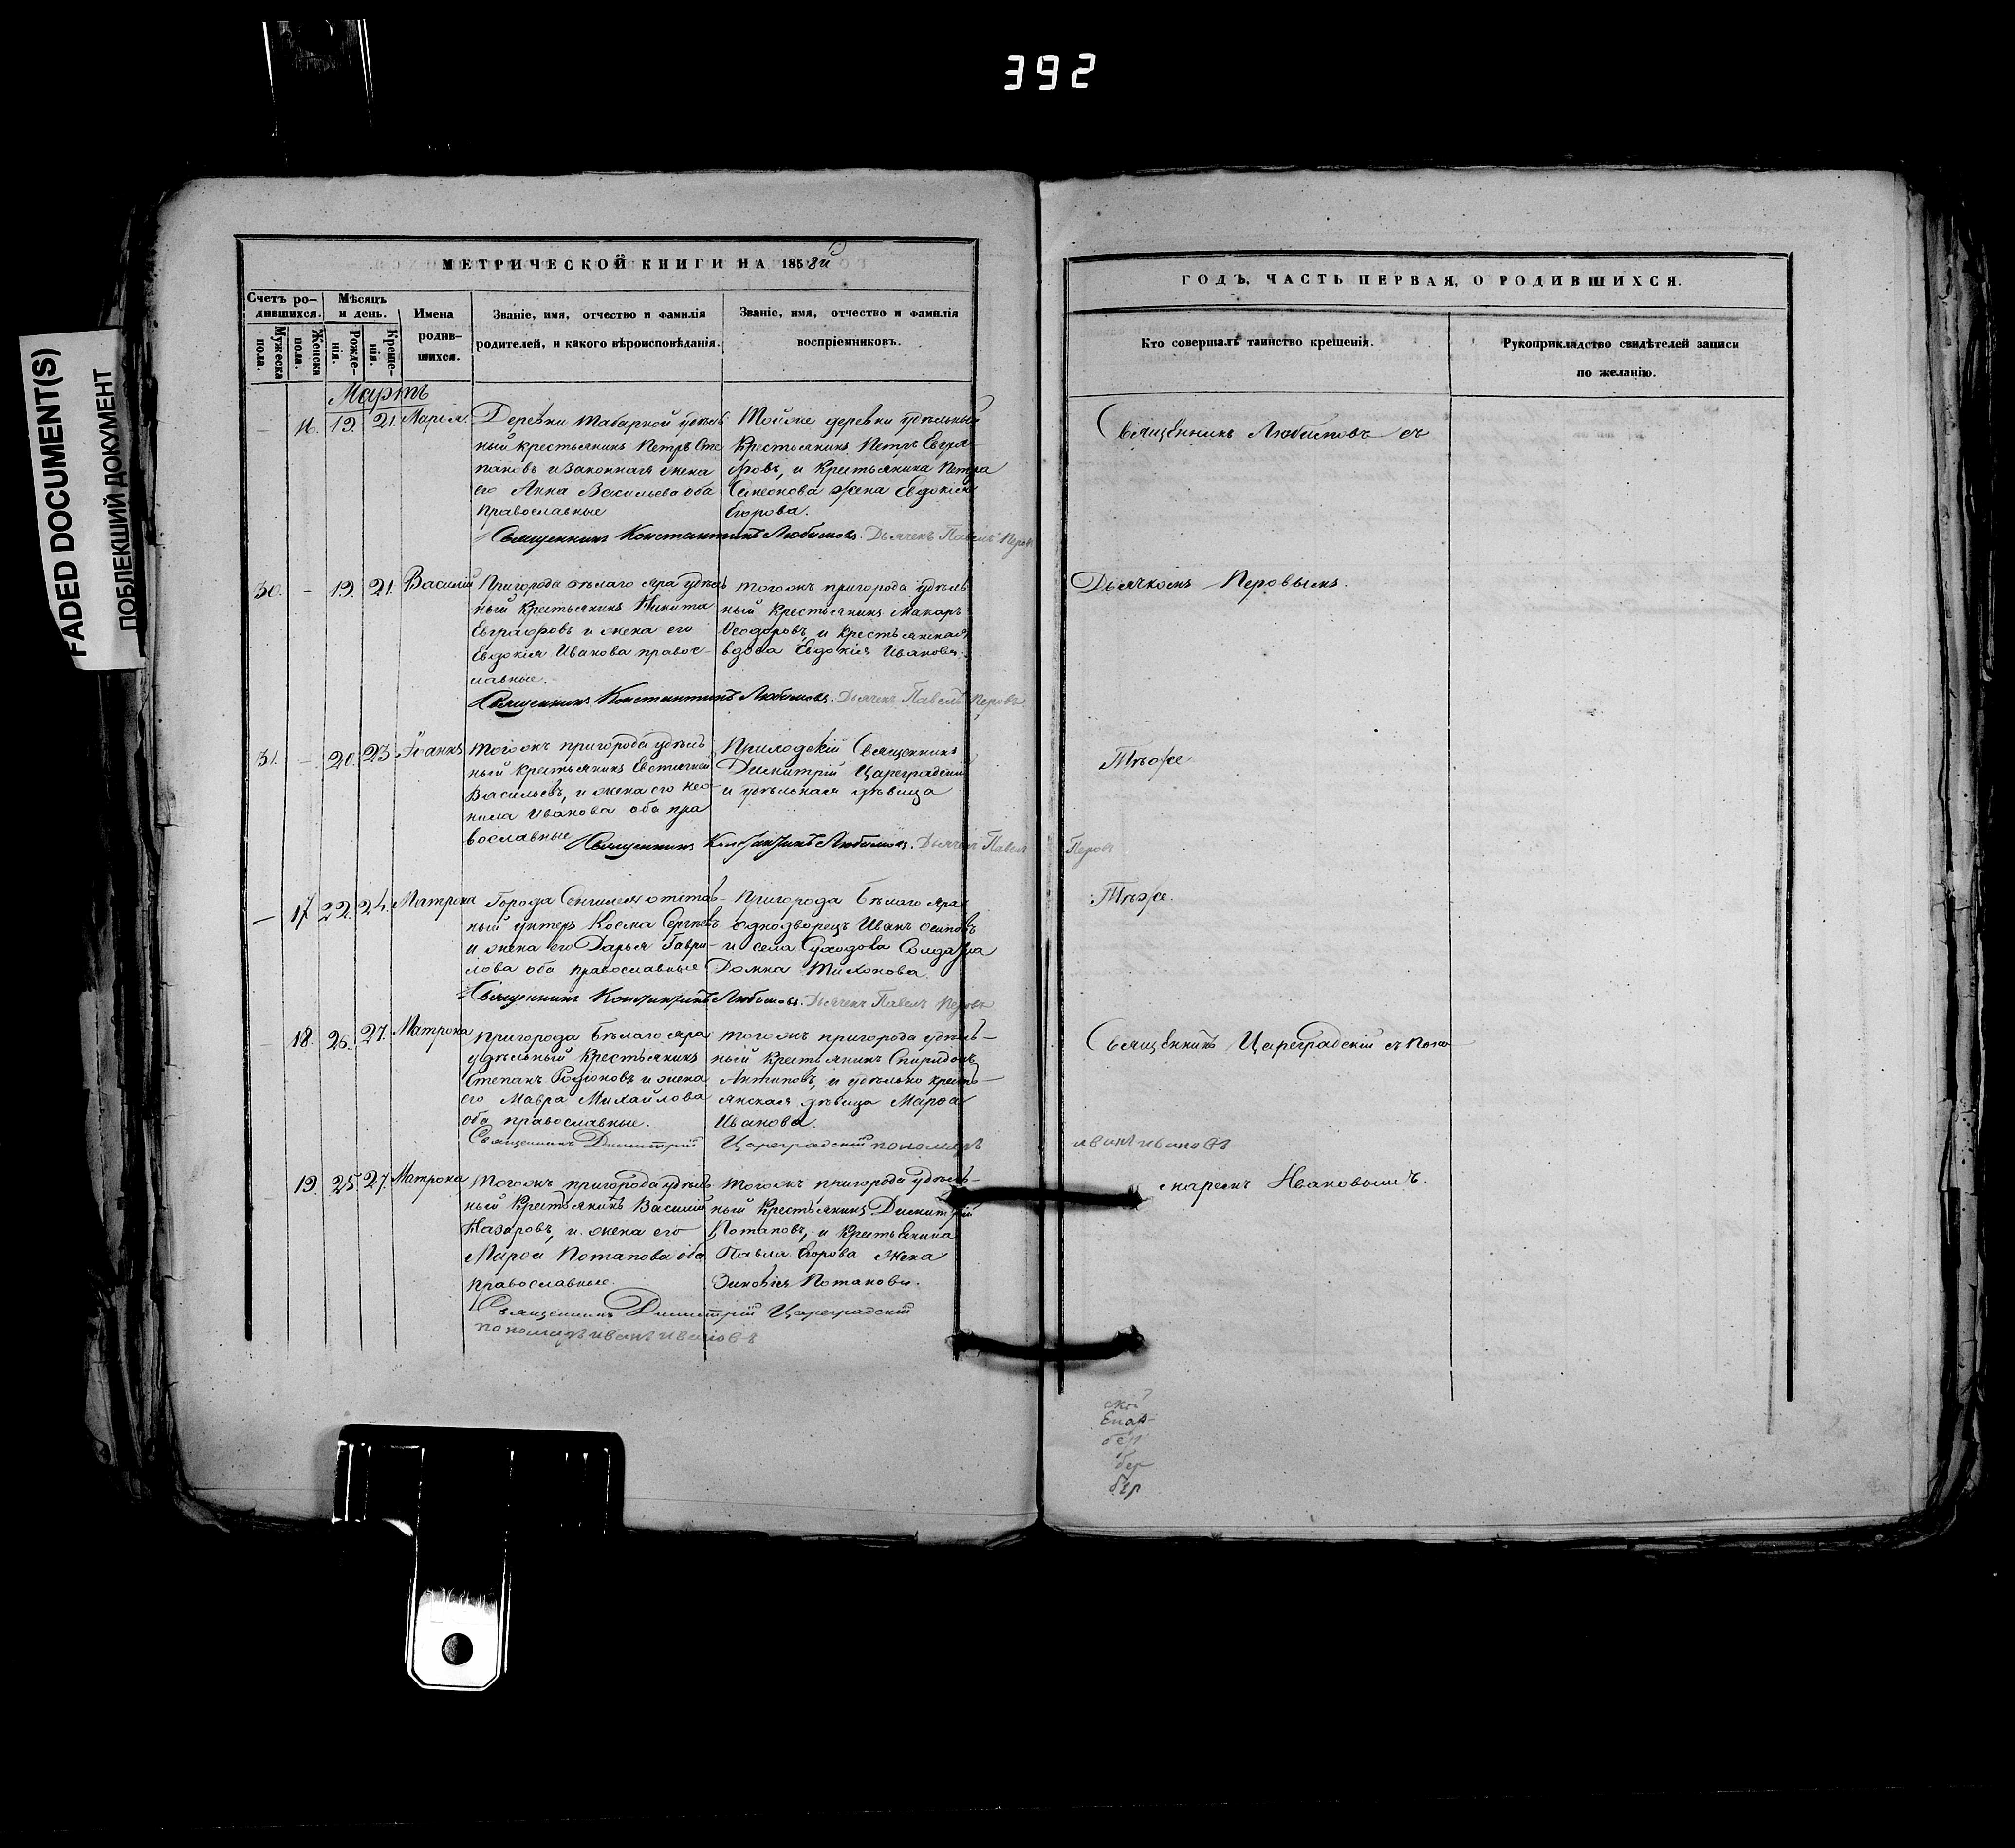 392
FADED DOCUMENT(S)
ПОБЛЕКШИЙ ДОКУМЕНТ
МЕТРИЧЕСКОЙ КНИГИ НА 1858й
Счетъ ро-
дившихся.
Мужеска
пола.
Женска
пола.
Мѣсяцъ
и день.
Рожде-
нія.
Креще-
нія.
Имена
родив-
шихся.
Званіе, имя, отчество и фамилія
родителей, и какого вѣроисповѣданія.
Званіе, имя, отчество и фамилія
воспріемниковъ.
Мартъ
— 16. 19. 21. Марія.
Деревни удѣль
ный крестьянинъ Петръ Сте
пановъ и законная жена
его Анна Васильева оба
православные
Тойже деревни удѣльный
крестьянинъ Петръ Евгра
фовъ, и крестьянина Петра
Симеонова жена Евдокія
Егорова.
Священникъ Константинъ Любимовъ. Дьячекъ Павелъ Перов
30. — 19. 21. Василій
Пригорода Бѣлаго Яра удѣль
ный крестьянинъ Никита
Евграфовъ и жена его
Евдокія Иванова правос-
лавные.
тогожъ пригорода удѣль
ный крестьянинъ Макаръ
Ѳеодоровъ, и крестьянская
вдова Евдокія Иванова.
Священникъ Константинъ Любимовъ. Дьячекъ Павелъ Перовъ
31. — 20. 23. Іоаннъ
тогожъ пригорода удѣль
ный крестьянинъ Евстигней
Васильевъ, и жена его Нео
нила Иванова оба пра
вославные
Приходскій Священникъ
Димитрій Цареградскій
и удѣльная дѣвица
Священникъ Константинъ Любимовъ. Дьячекъ Павелъ Перовъ
— 17 22. 24. Матрона
Города Сенгилея отстав-
ный унтеръ Косма Сергѣевъ
и жена его Дарья Гаври-
лова оба православные
Пригорода Бѣлаго Яра
однодворецъ Иванъ Осиповъ
и села Суходола Солдатка
Домна Тихонова.
Священникъ Константинъ Любимовъ. Дьячекъ Павелъ Перовъ
— 18. 26. 27. Матрона
Пригорода Бѣлаго Яра
удѣльный крестьянинъ
Степанъ Родіоновъ и жена
его Мавра Михайлова
оба православные.
тогожъ пригорода удѣль-
ный крестьянинъ Спиридонъ
Антиповъ, и удѣльно кресть-
янская дѣвица Марѳа
Иванова.
Священникъ Димитрій Цареградскій пономарь
иванъ ивановъ
— 19. 25. 27. Матрона
Тогожъ пригорода удѣль
ный крестьянинъ Василій
Назаровъ, и жена его
Марѳа Потапова оба
православные.
тогожъ пригорода удѣль-
ный крестьянинъ Димитрій
Потаповъ, и крестьянина
Павла Егорова жена
Зиновія Потапова.
Священникъ Димитрій Цареградскій
пономарь иванъ ивановъ
ГОДЪ, ЧАСТЬ ПЕРВАЯ, О РОДИВШИХСЯ.
Кто совершалъ таинство крещенія.
Рукоприкладство свидѣтелей записи
по желанію.
Священникъ Любимовъ съ
Дьячкомъ Перовымъ.
Тѣже
Тѣже.
Священникъ Цареградскій съ поно
маремъ Ивановымъ.
ской
Епар-